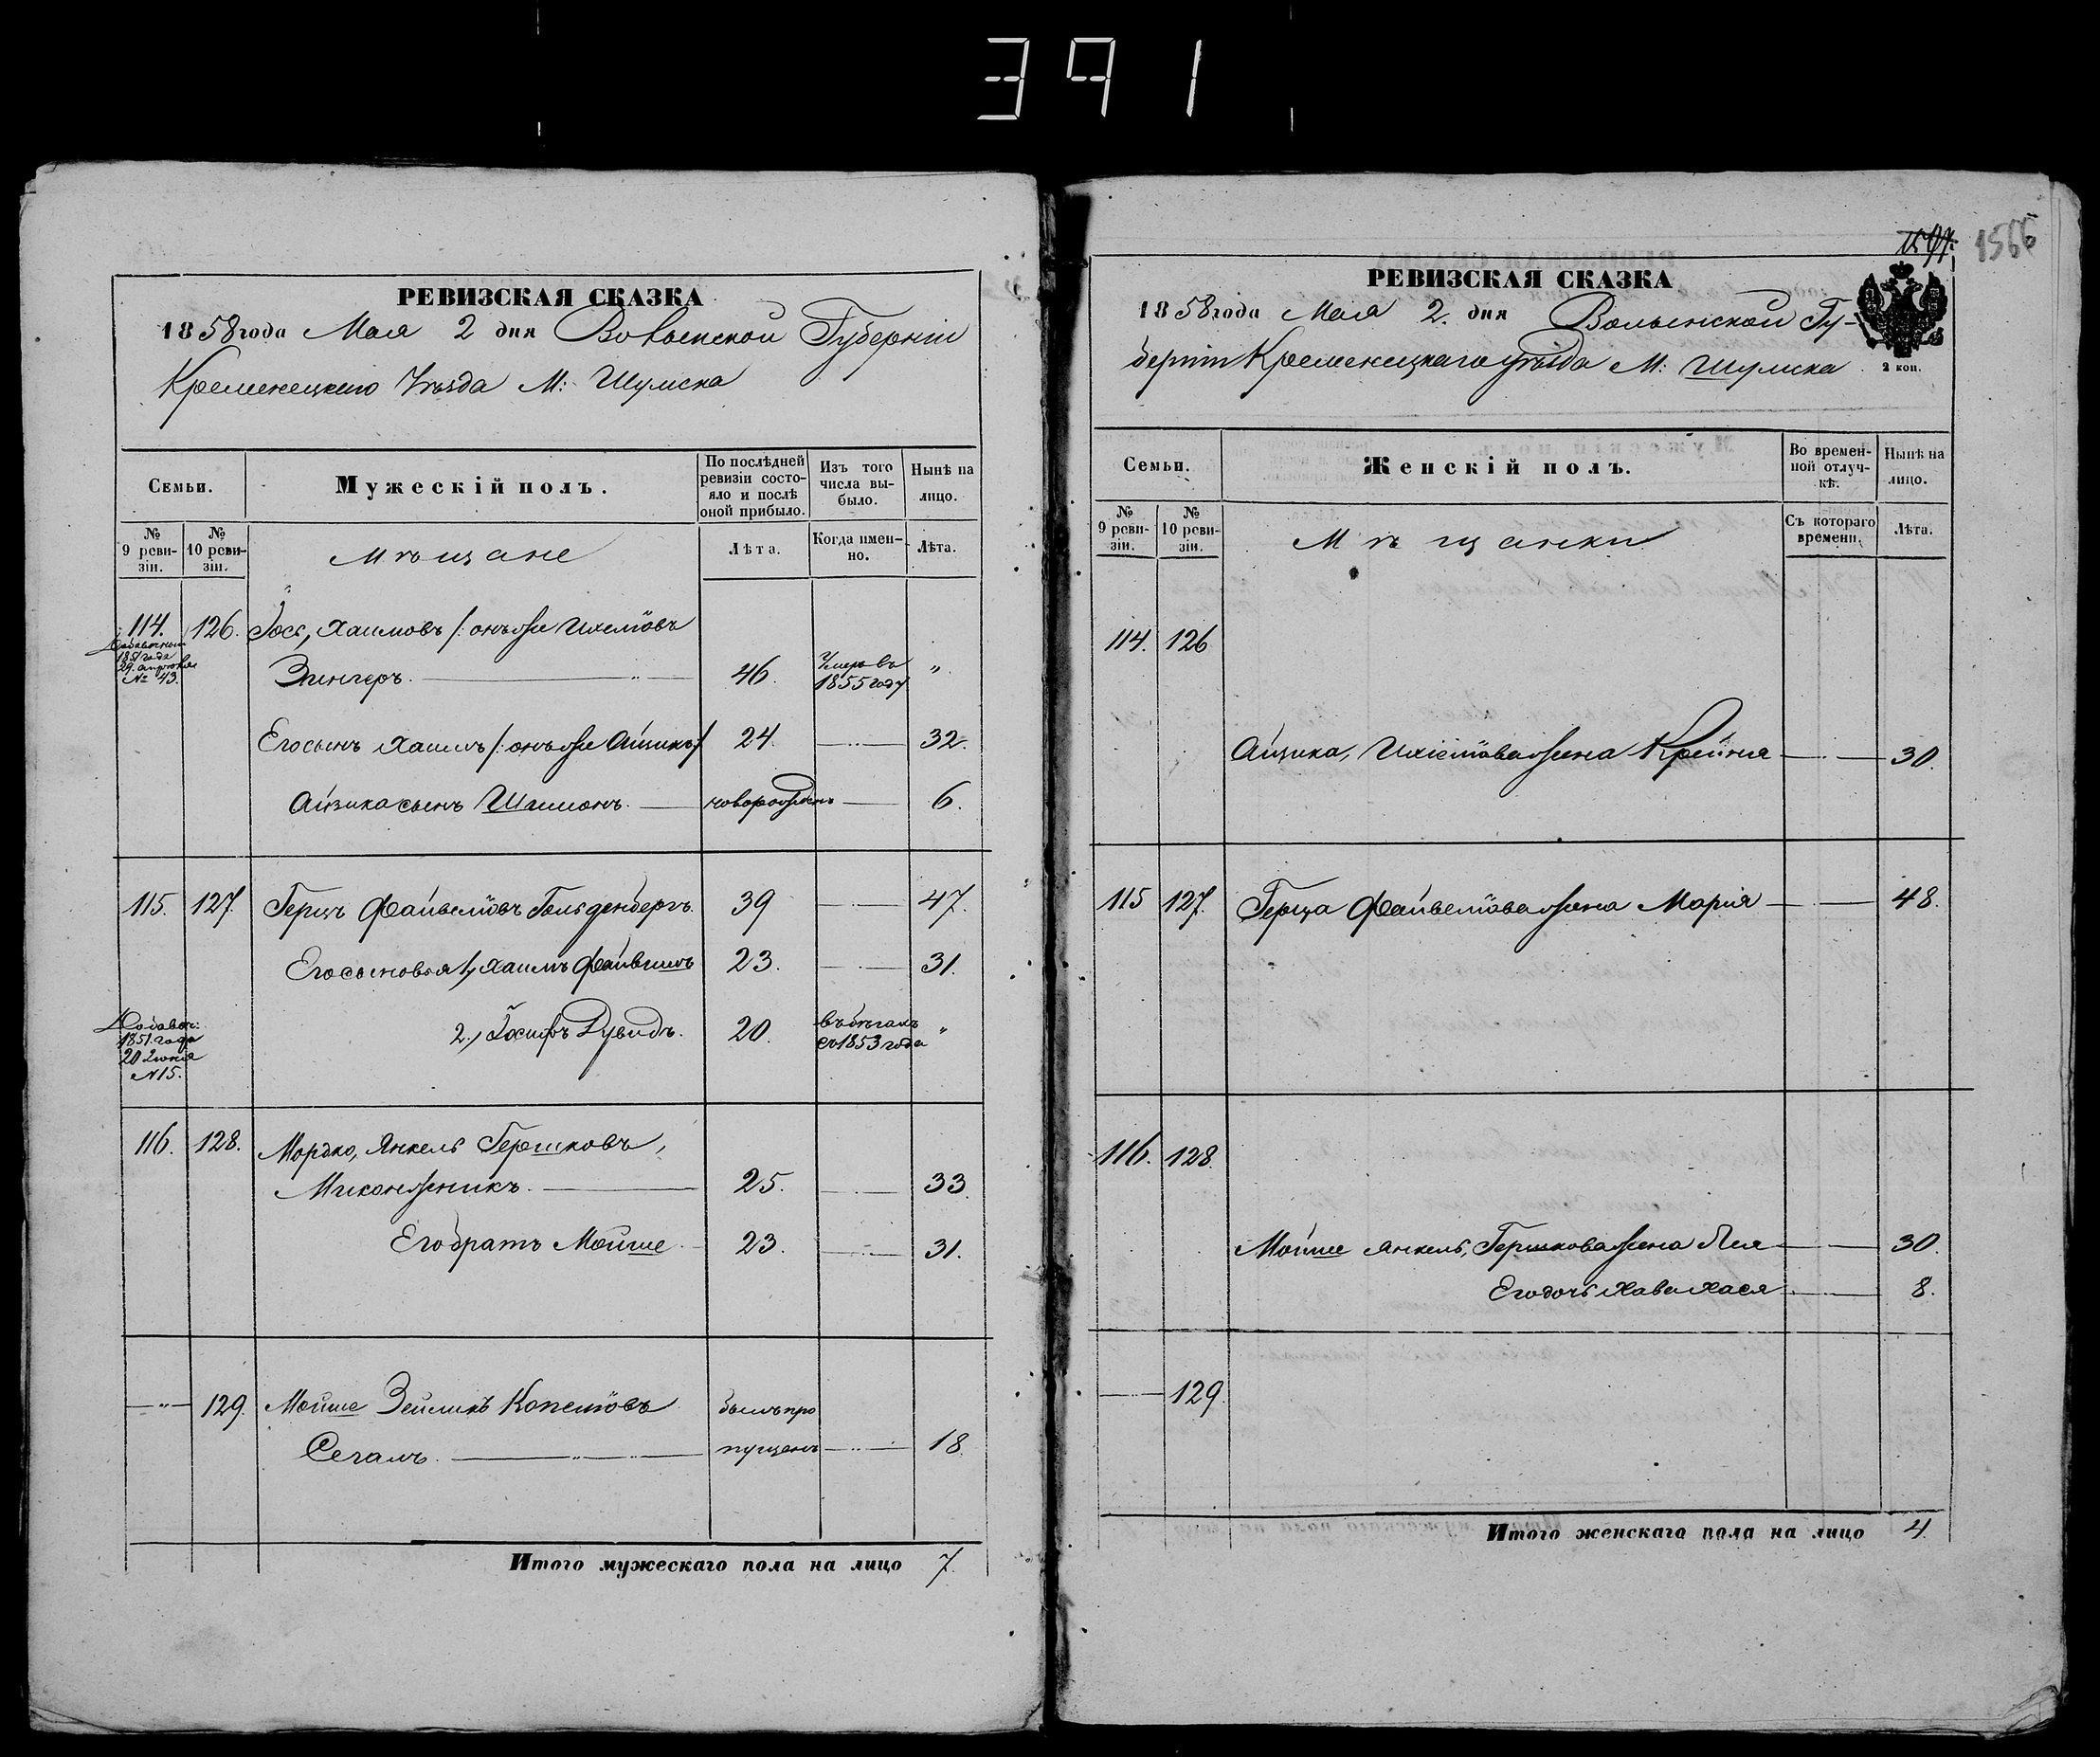 391
РЕВИЗСКАЯ СКАЗКА
1858 года Мая 2 дня Волынской Губерніи
Кременецкаго Уѣзда М: Шумска
Семьи.
Мужескій полъ.
По послѣдней ревизіи состояло и послѣ оной прибыло.
Изъ того числа выбыло.
Нынѣ на лицо.
№ 9 ревизіи.
№ 10 ревизіи.
Мѣщане
Лѣта.
Когда именно.
Лѣта.
114. 126. Іось, Хаимовъ /: онъ же Ихелiовъ
Добавочный
1851 года
29. апрѣля
№ 43.
Зингеръ. 46. Умеръ въ 1855 году "
Его сынъ Хаимъ /: онъ же Айзикъ:/ 24. 32.
Айзика сынъ Шлиомъ. новорожденъ 6.
115. 127. Герцъ Файвелiовъ Гольденбергъ. 39 47.
Его сыновья 1, Хаимъ Файвишъ 23. 31.
Добавоч:
1851 года
20 Іюня
№15.
2., Іосифъ Дувидъ. 20. въ бѣгахъ съ 1853 года "
116. 128. Мордко, Янкель Гершковъ,
Миконжникъ. 25. 33.
Его братъ Мойше 23. 31.
" 129. Мойше Зейликъ Копелiовъ былъ про
Сегалъ. пущенъ 18.
Итого мужескаго пола на лицо 7.
1566
РЕВИЗСКАЯ СКАЗКА
1858 года Мая 2. дня Волынской Гу-
берніи Кременецкаго уѣзда М: Шумска
2 коп.
Семьи.
Женскій полъ.
Во временной отлучкѣ.
Нынѣ на лицо.
№ 9 ревизіи.
№ 10 ревизіи.
Мѣщанки
Съ котораго времени.
Лѣта.
114. 126
Айзика, Ихелiова жена Крейня 30.
115 127. Герца Файвелiова жена Марія 48.
116. 128.
Мойше Янкель, Гершкова жена Лея 30.
Его дочь Хава Хася 8.
129.
Итого женскаго пола на лицо 4.